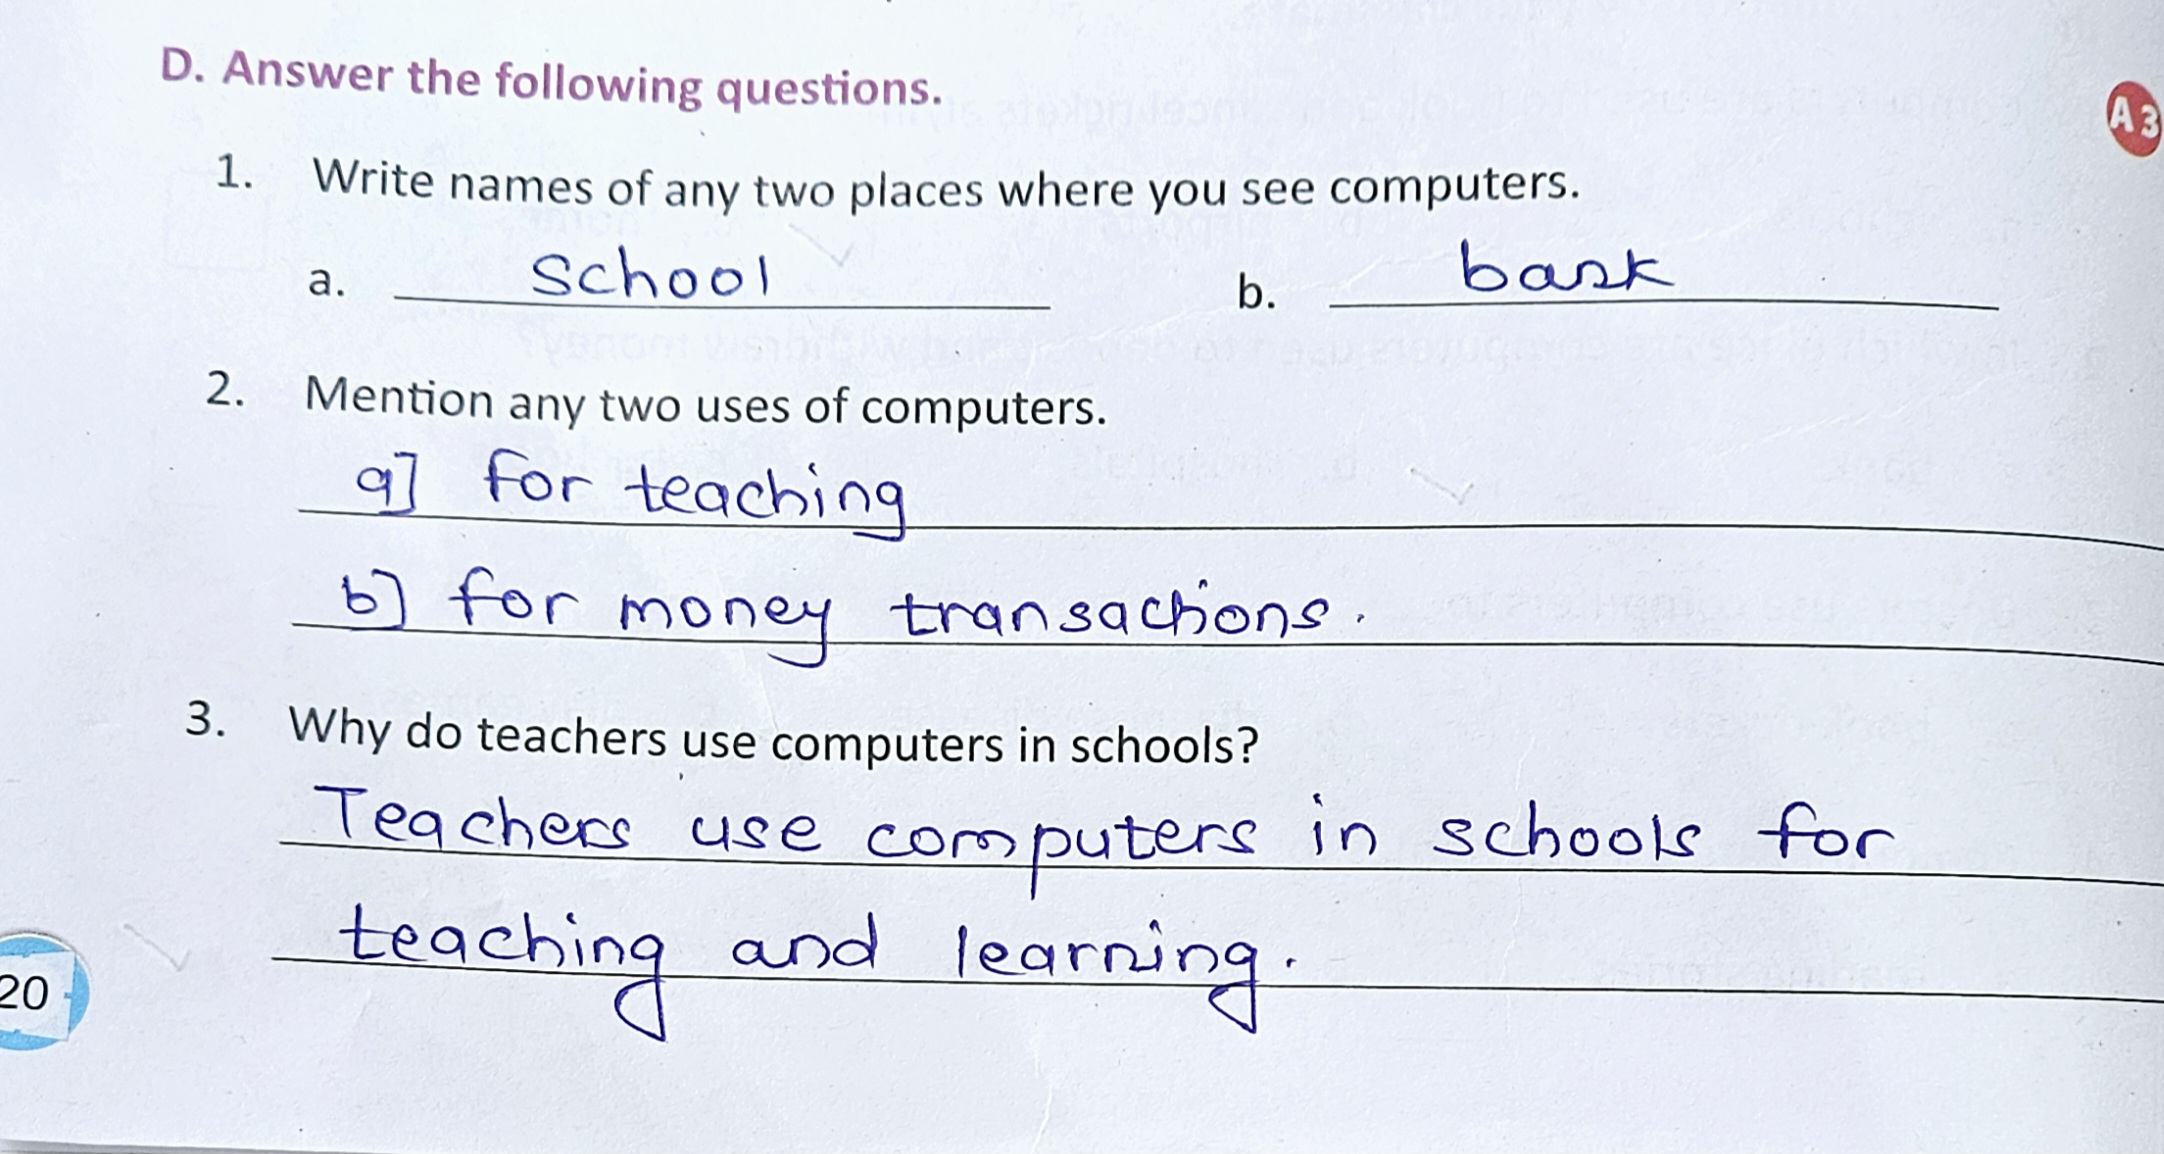 D. Answer the following questions.
A3
1. Write names of any two places where you see computers.
a. school b. bank
2. Mention any two uses of computers.
a] for teaching
b] for money transactions.
3. Why do teachers use computers in schools?
Teachers use computers in schools for
teaching and learning.
20